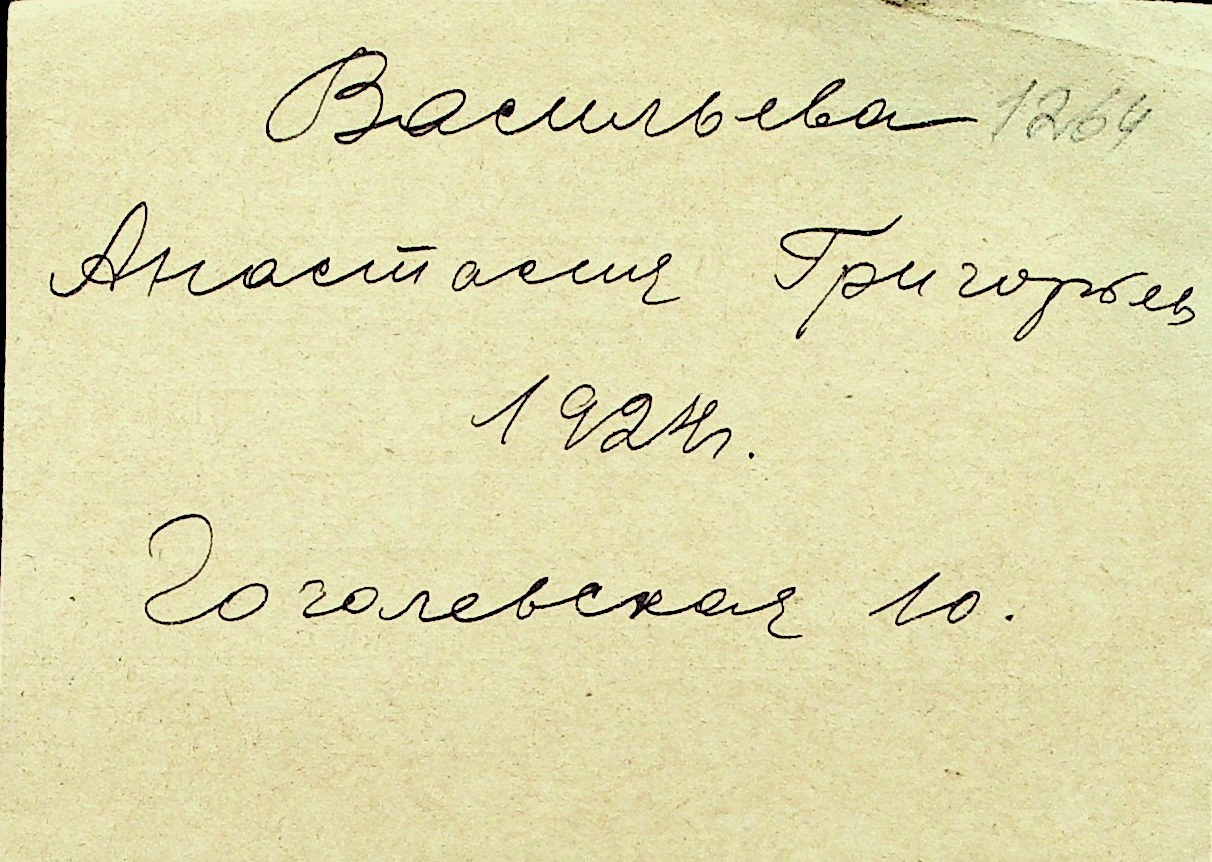 Васильева 1264
Анастасия Григорьев
1924г.
Гоголевская 10.